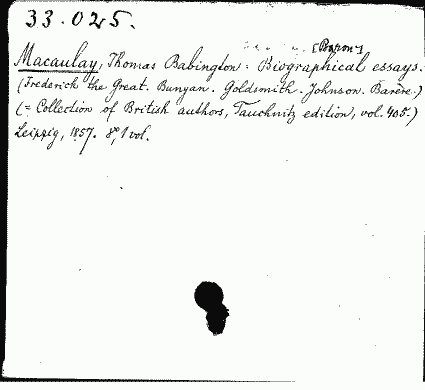 33.025.
[Baron]
Macaulay, Thomas Babington: Biographical essays.
(Frederick the Great. Bunyan. Goldsmith. Johnson. Barère.)
(= Collection of British authors, Tauchnitz edition, vol. 405.)
Leipzig, 1857. 8°, 1 vol.